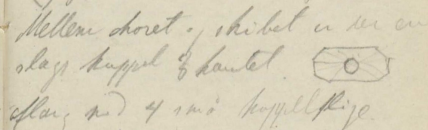 Mellem choret og skibet er der en
slags kuppel 8 kantet.
aflang med 4 små